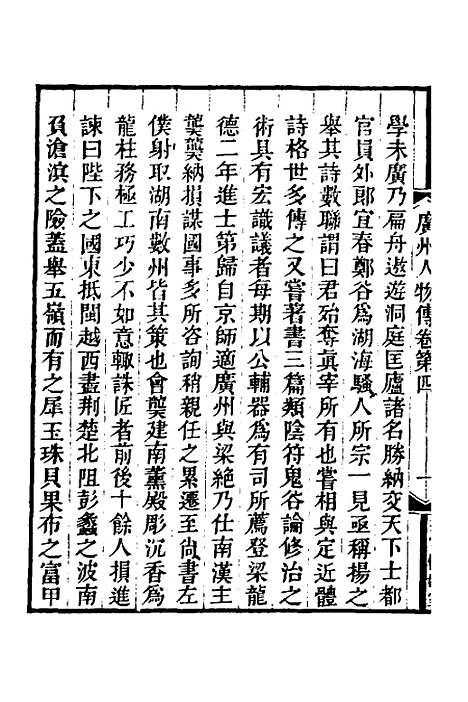 廣州人物傳卷第四
學未廣乃扁舟遨遊洞庭匡廬諸名勝納交天下士都
官員外郎宜春鄭谷爲湖海騷人所宗一見亟稱揚之
舉其詩數聯謂曰君殆奪眞宰所有也嘗相與定近體
詩格世多傳之又嘗著書三篇類陰符鬼谷論修治之
術具有宏識議者每期以公輔器爲有司所薦登梁龍
德二年進士第歸自京師適廣州與梁絶乃仕南漢主
龑龑納損謀國事多所咨詢稍親任之累遷至尙書左
僕射取湖南數州皆其策也會龑建南薰殿彫沉香爲
龍柱務極工巧少不如意輙誅匠者前後十餘人損進
諫曰陛下之國東抵閩越西盡荆楚北阻彭蠡之波南
負滄濵之險蓋舉五嶺而有之犀玉珠貝果布之富甲